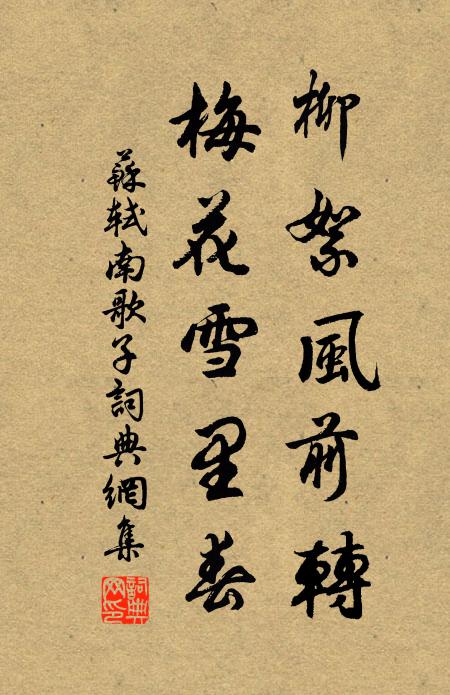 柳絮風前轉
梅花雪里春
蘇軾南歌子詞典網集
詞典网印